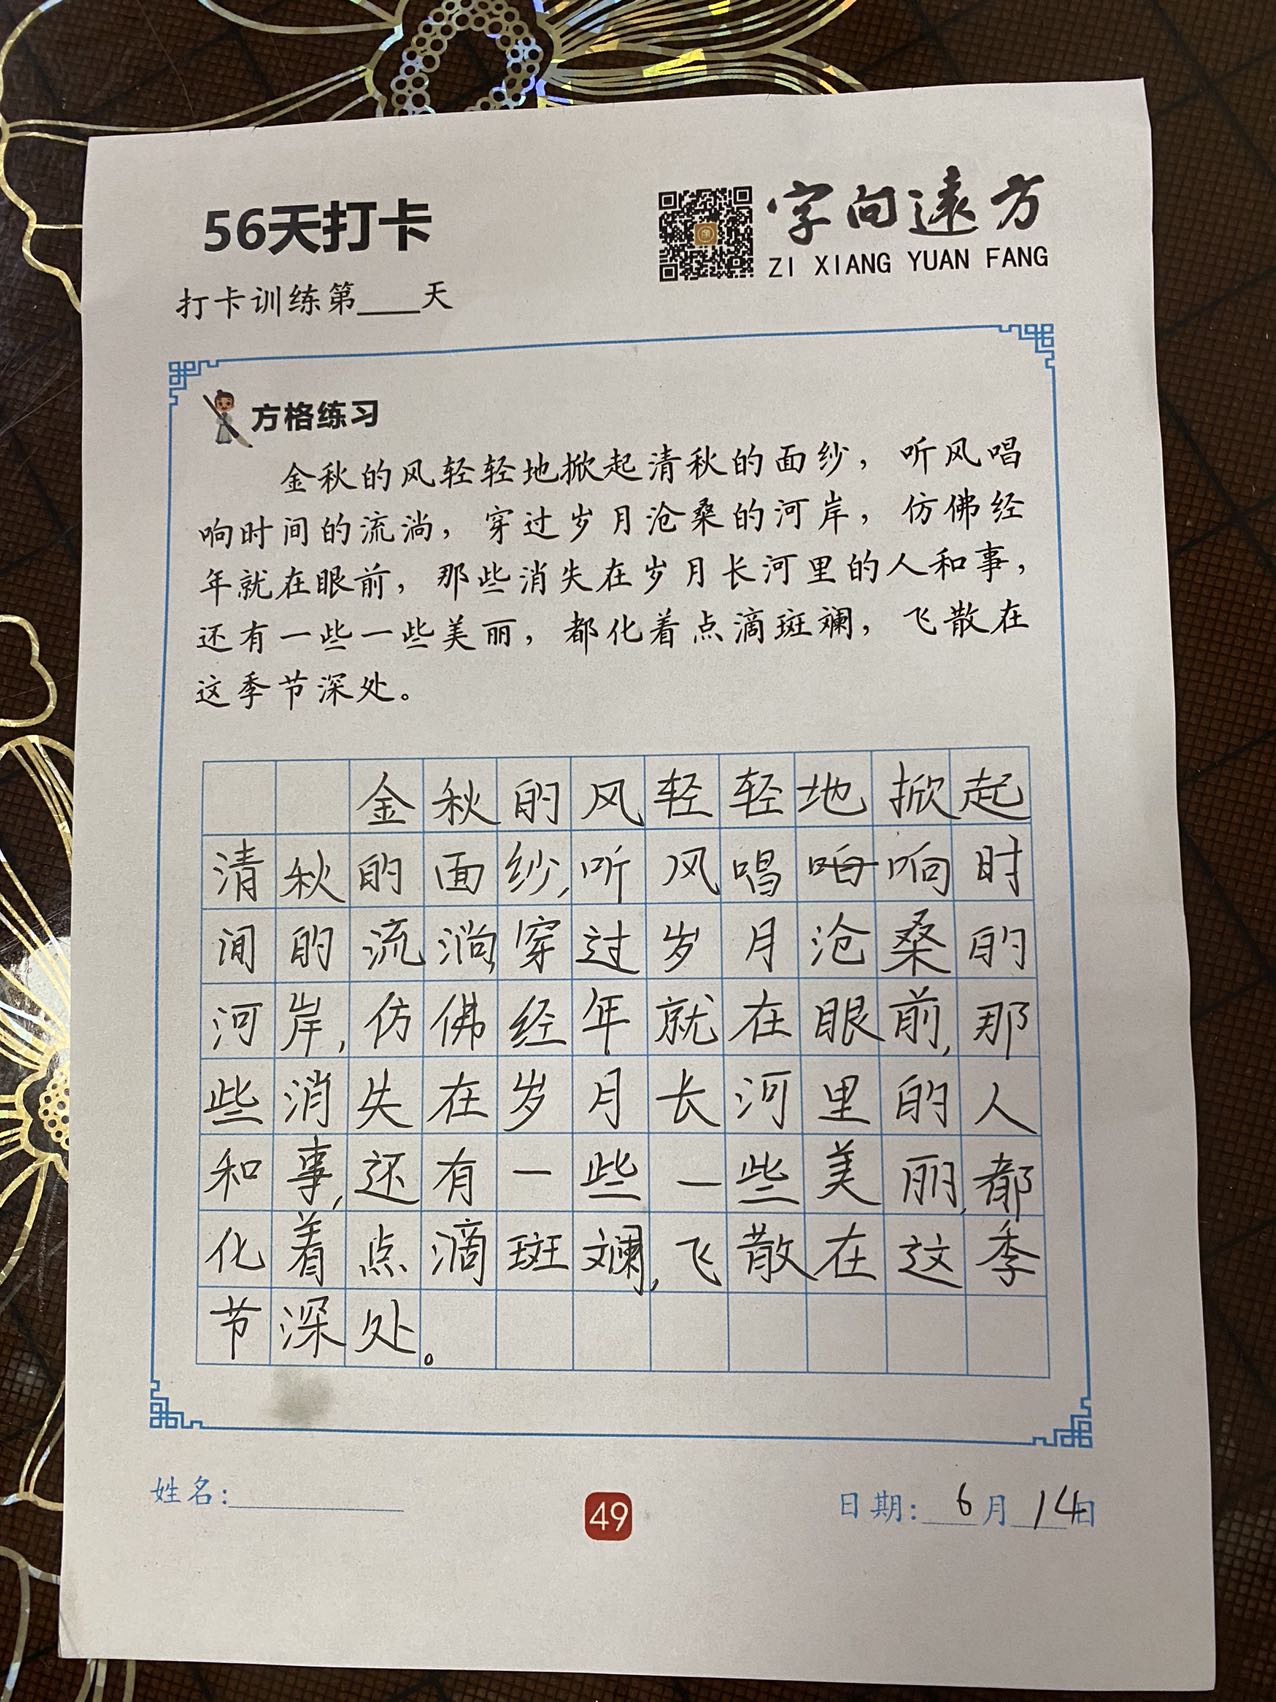 56天打卡
字向遠方
ZI XIANG YUAN FANG
打卡训练第____天
方格练习
金秋的风轻轻地掀起清秋的面纱，听风唱
响时间的流淌，穿过岁月沧桑的河岸，仿佛经
年就在眼前，那些消失在岁月长河里的人和事，
还有一些一些美丽，都化着点滴斑斓，飞散在
这季节深处。
金秋的风轻轻地掀起
清秋的面纱,听风唱响时
间的流淌,穿过岁月沧桑的
河岸,仿佛经年就在眼前,那
些消失在岁月长河里的人
和事,还有一些一些美丽,都
化着点滴斑斓,飞散在这季
节深处。
姓名:
49
日期: 6月14日